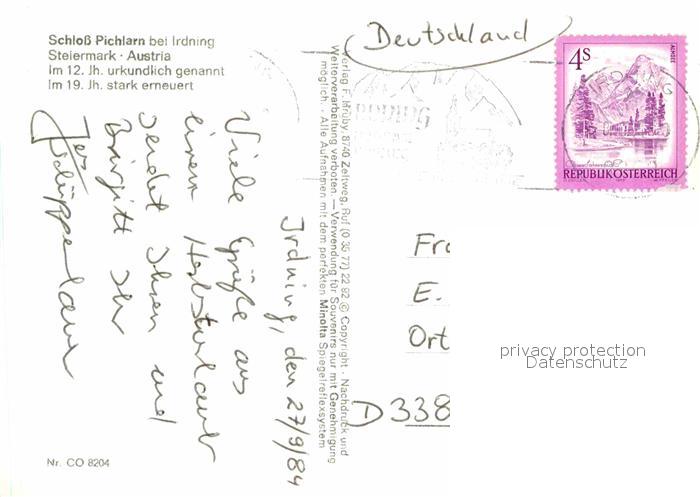 Schloß Pichlarn bei Irdning
Steiermark · Austria
Im 12. Jh. urkundlich genannt
Im 19. Jh. stark erneuert
Deutschland
4S
ALMSEE
REPUBLIK ÖSTERREICH
Verlag F. Hruby, 8740 Zeltweg, Ruf (0 35 77) 22 82 © Copyright · Nachdruck und
Weiterverarbeitung verboten. — Verwendung für Souvenirs nur mit Genehmigung
möglich. Alle Aufnahmen mit dem perfekten Minolta Spiegelreflexsystem
Irdning, den 27/9/84
Viele Grüße aus
einem Herbsturlaub
sendet Ihnen und
Brigitt Ihr
Fra
E.
Ort
D 338
privacy protection
Datenschutz
Nr. CO 8204